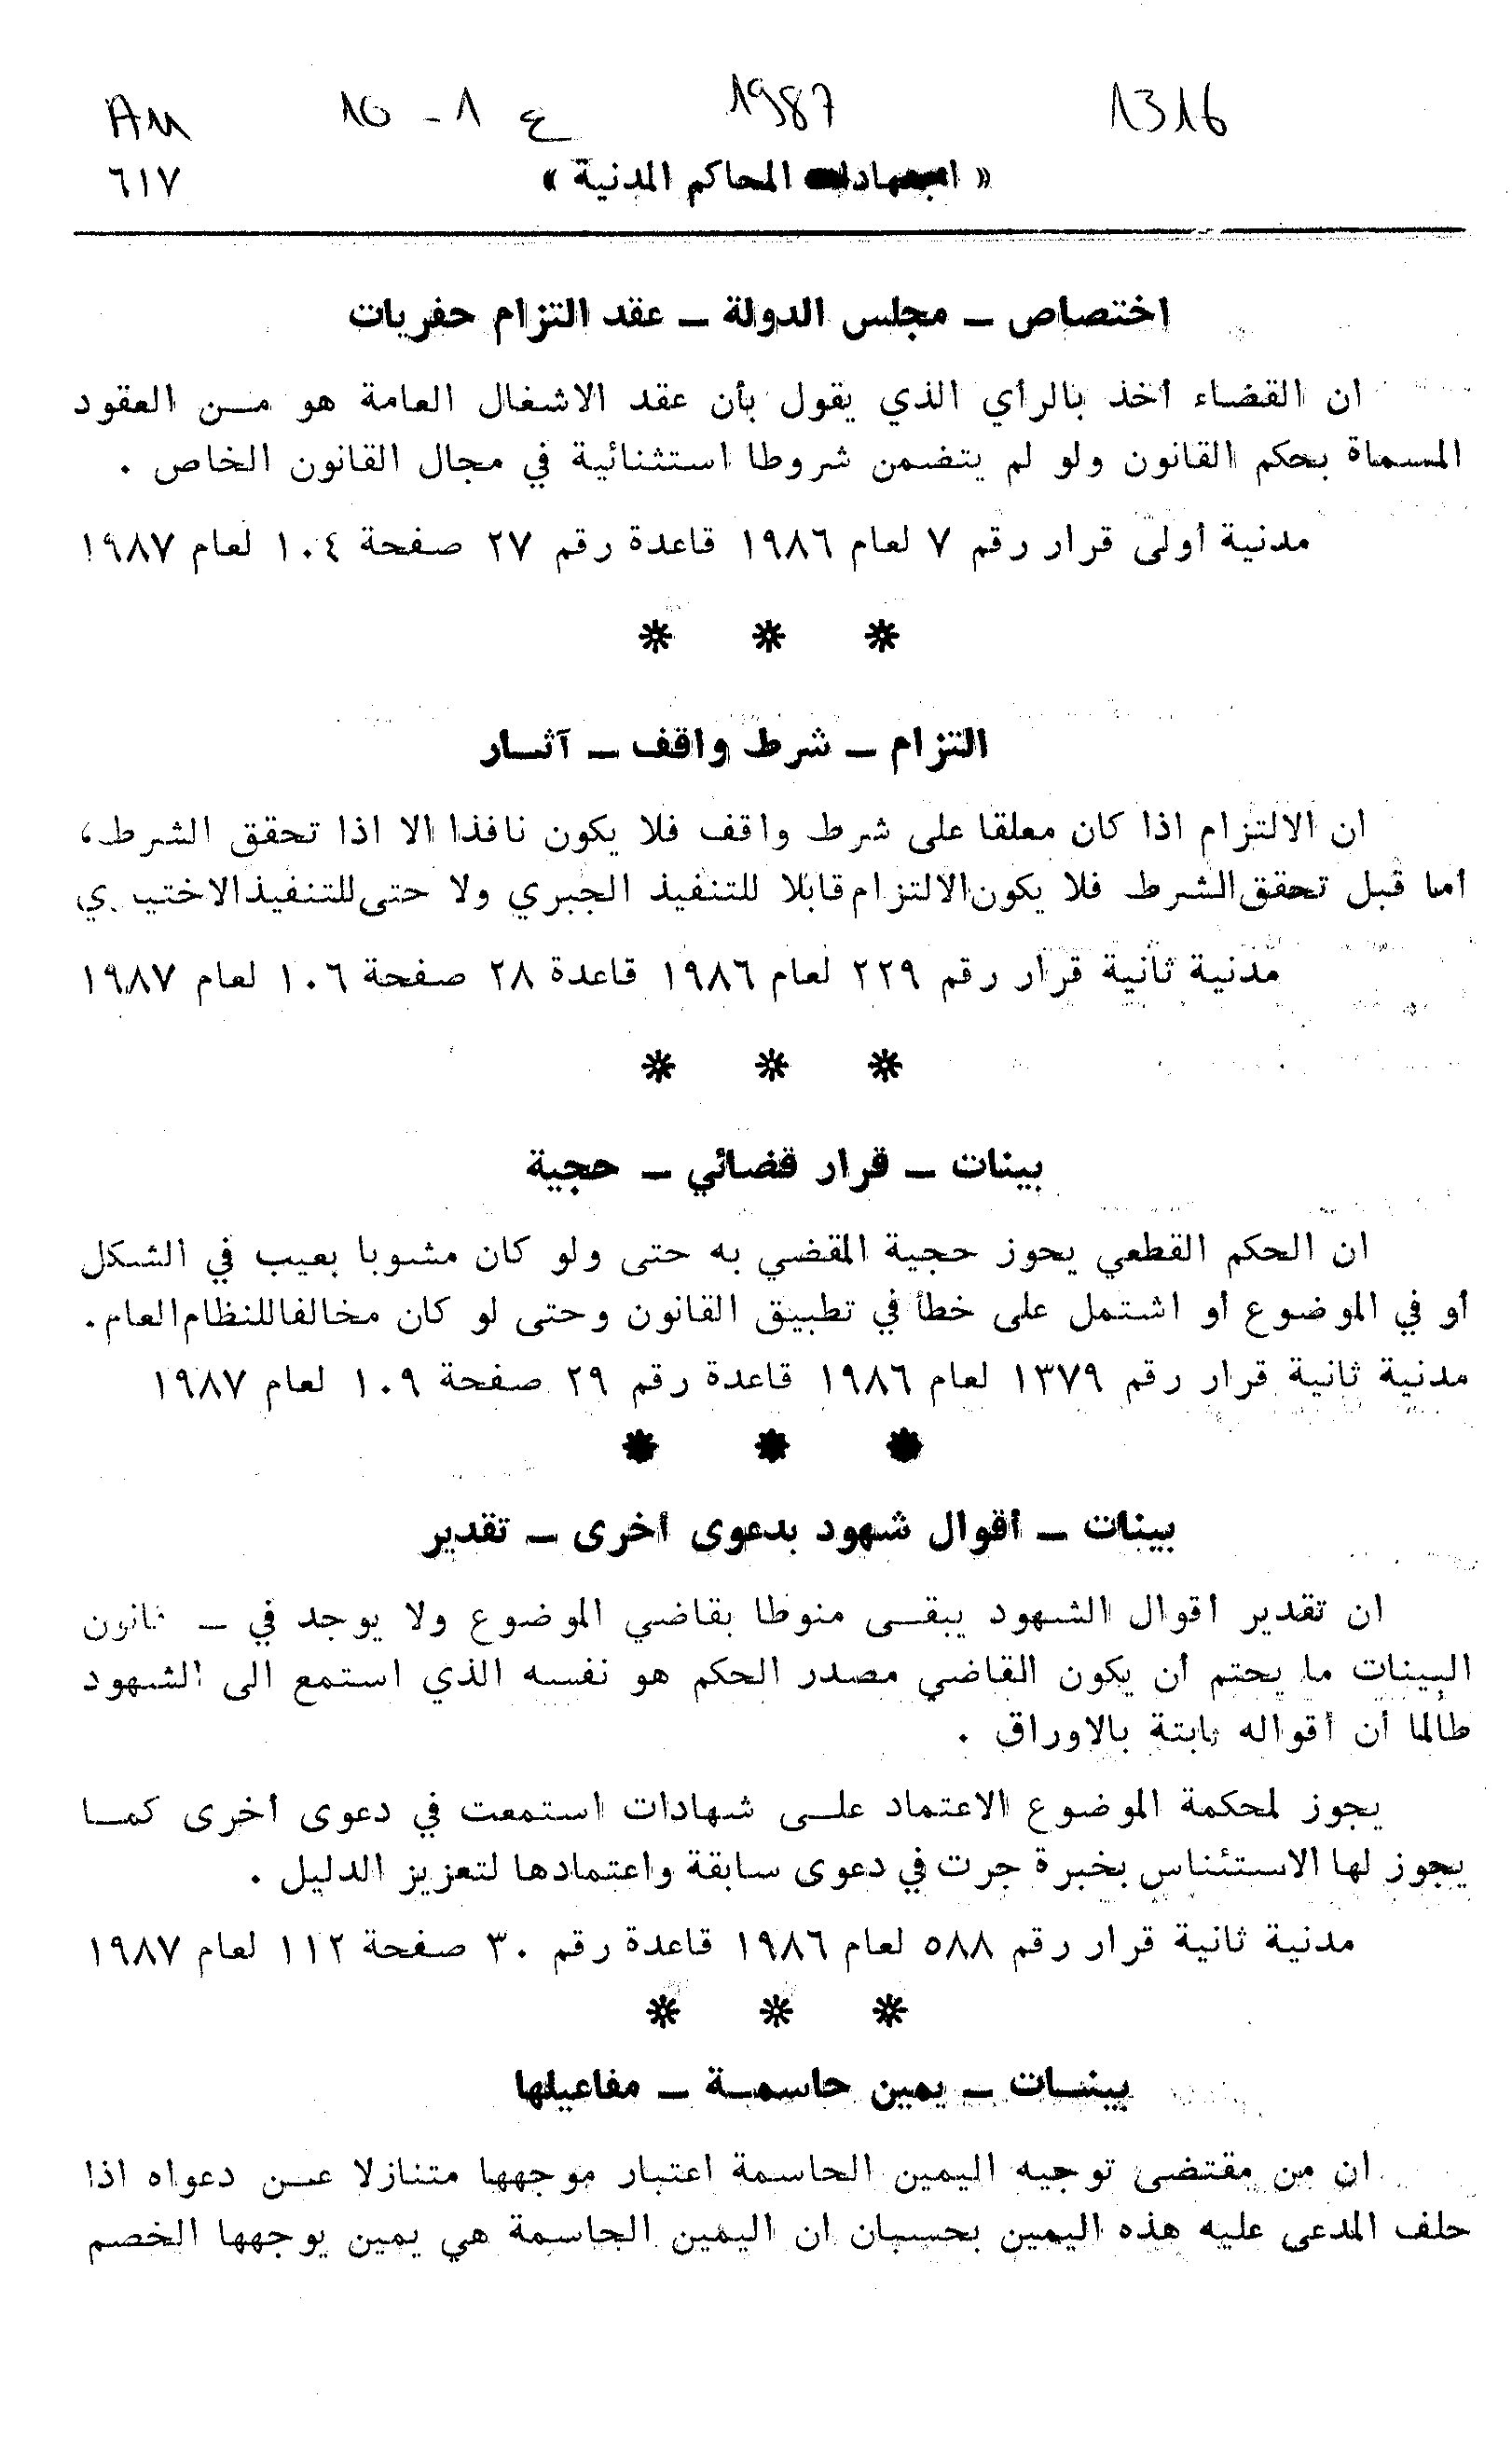 1316 1987 ع 1 - 10 A11
« اجتهادات المحاكم المدنية » ٦١٧
اختصاص ــ مجلس الدولة ــ عقد التزام حفريات
ان القضاء أخذ بالرأي الذي يقول بأن عقد الاشغال العامة هو مـن العقود
المسماة بحكم القانون ولو لم يتضمن شروطا استثنائية في مجال القانون الخاص .
مدنية أولى قرار رقم ٧ لعام ١٩٨٦ قاعدة رقم ٢٧ صفحة ١٠٤ لعام ١٩٨٧
* * *
التزام ــ شرط واقف ــ آثـار
ان الالتزام اذا كان معلقا على شرط واقف فلا يكون نافذا الا اذا تحقق الشرط،
أما قبل تحقق الشرط فلا يكون الالتزام قابلا للتنفيذ الجبري ولا حتى للتنفيذ الاختيـ ـري
مدنية ثانية قرار رقم ٢٢٩ لعام ١٩٨٦ قاعدة ٢٨ صفحة ١٠٦ لعام ١٩٨٧
* * *
بينات ــ قرار قضائي ــ حجية
ان الحكم القطعي يحوز حجية المقضي به حتى ولو كان مشوبا بعيب في الشكل
أو في الموضوع أو اشتمل على خطأ في تطبيق القانون وحتى لو كان مخالفا للنظام العام.
مدنية ثانية قرار رقم ١٣٧٩ لعام ١٩٨٦ قاعدة رقم ٢٩ صفحة ١٠٩ لعام ١٩٨٧
* * *
بينات ــ أقوال شهود بدعوى أخرى ــ تقدير
ان تقدير أقوال الشهود يبقـى منوطا بقاضي الموضوع ولا يوجد في ــ قانون
البينات ما يحتم أن يكون القاضي مصدر الحكم هو نفسه الذي استمع الى الشهود
طالما أن أقواله ثابتة بالاوراق .
يجوز لمحكمة الموضوع الاعتماد علـى شهادات استمعت في دعوى أخرى كمـا
يجوز لها الاستئناس بخبرة جرت في دعوى سابقة واعتمادها لتعزيز الدليل .
مدنية ثانية قرار رقم ٥٨٨ لعام ١٩٨٦ قاعدة رقم ٣٠ صفحة ١١٢ لعام ١٩٨٧
* * *
بينـات ــ يمين حاسمـة ــ مفاعيلها
ان من مقتضى توجيه اليمين الحاسمة اعتبار موجهها متنازلا عـن دعواه اذا
حلف المدعى عليه هذه اليمين بحسبان ان اليمين الحاسمة هي يمين يوجهها الخصم